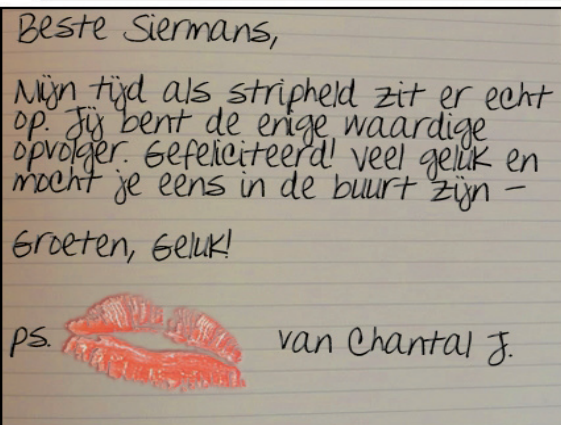 Beste Siermans,
Mijn tijd als stripheld zit er echt
op. Jij bent de enige waardige
opvolger. Gefeliciteerd! Veel geluk en
mocht je eens in de buurt zijn –
Groeten, Geluk!
ps. van Chantal J.